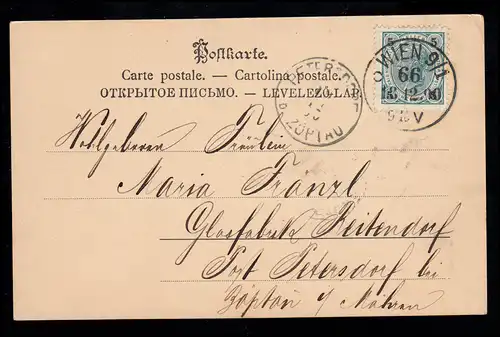 Postkarte.
Carte postale. — Cartolina postale.
ОТКРЫТОЕ ПИСЬМО. — LEVELEZŐ-LAP.
5 5
WIEN 9/1
66
18.12.00
9 V
PETERSDORF
ZÖPTAU
Wohlgeboren Fräulein
Maria Franzl
Glasfabrik Reitendorf
Post Petersdorf bei
Zöptau i/ Mähren